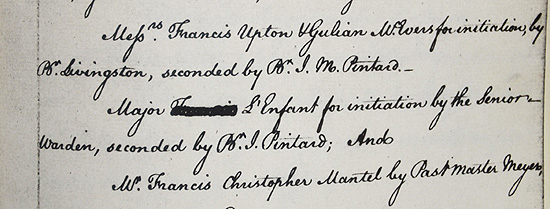 Messrs Francis Upton & Gulian McEvers for initiation, by
Br. Livingston, seconded by Br. J. M. Pintard.—
Major L'Enfant for initiation by the Senior
Warden, seconded by Br. J. Pintard; And
Mr. Francis Christopher Mantel by Past Master Meyer,